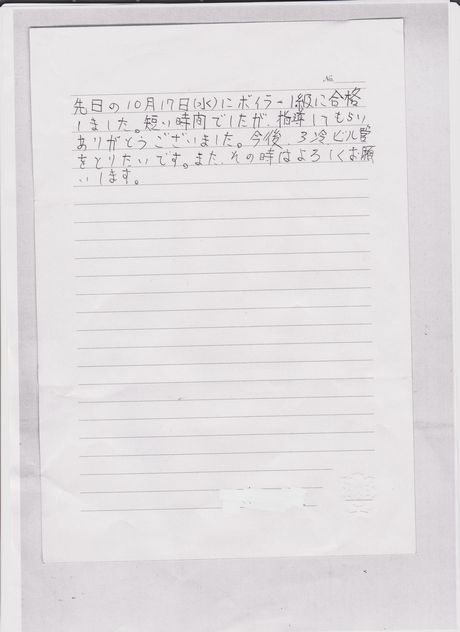 No.
先日の10月17日(水)にボイラー1級に合格
しました。短い時間でしたが、指導してもらい
ありがとうございました。今後、3冷、ビル管
をとりたいです。また、その時はよろしくお願
いします。